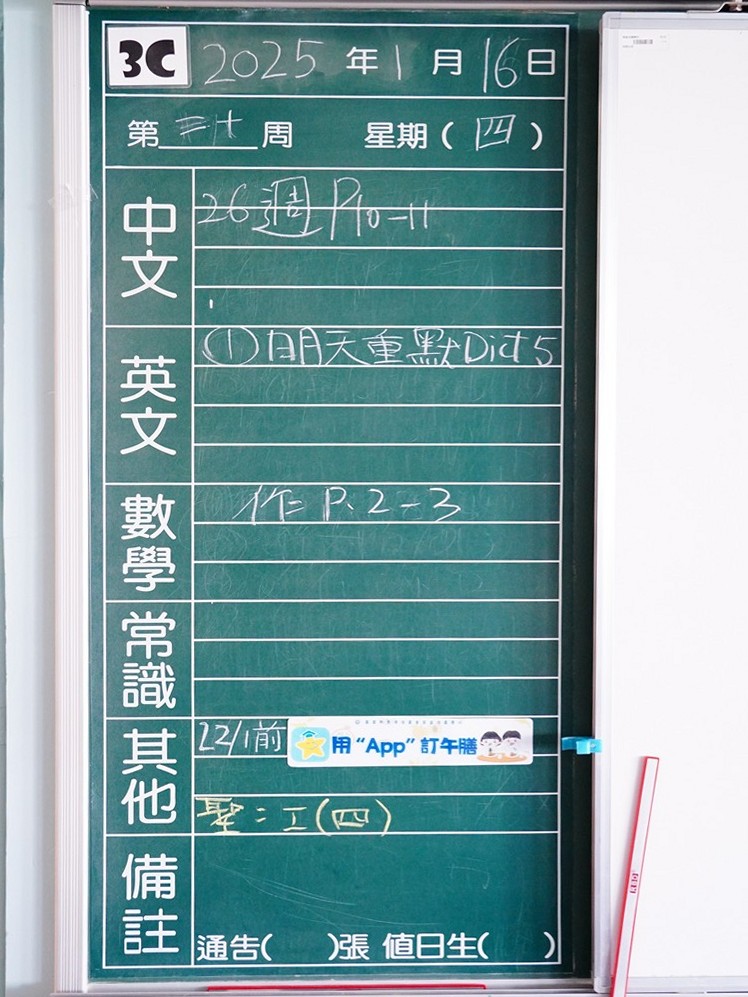 3C 2025 年 1 月 16 日
第 二十 周 星期( 四 )
中文
26週 P10-11
英文
① 明天重默Dict 5
數學
作: P.2-3
常識
其他
22/1前 用“App”訂午膳
聖:工(四)
備註
通告( )張 值日生( )